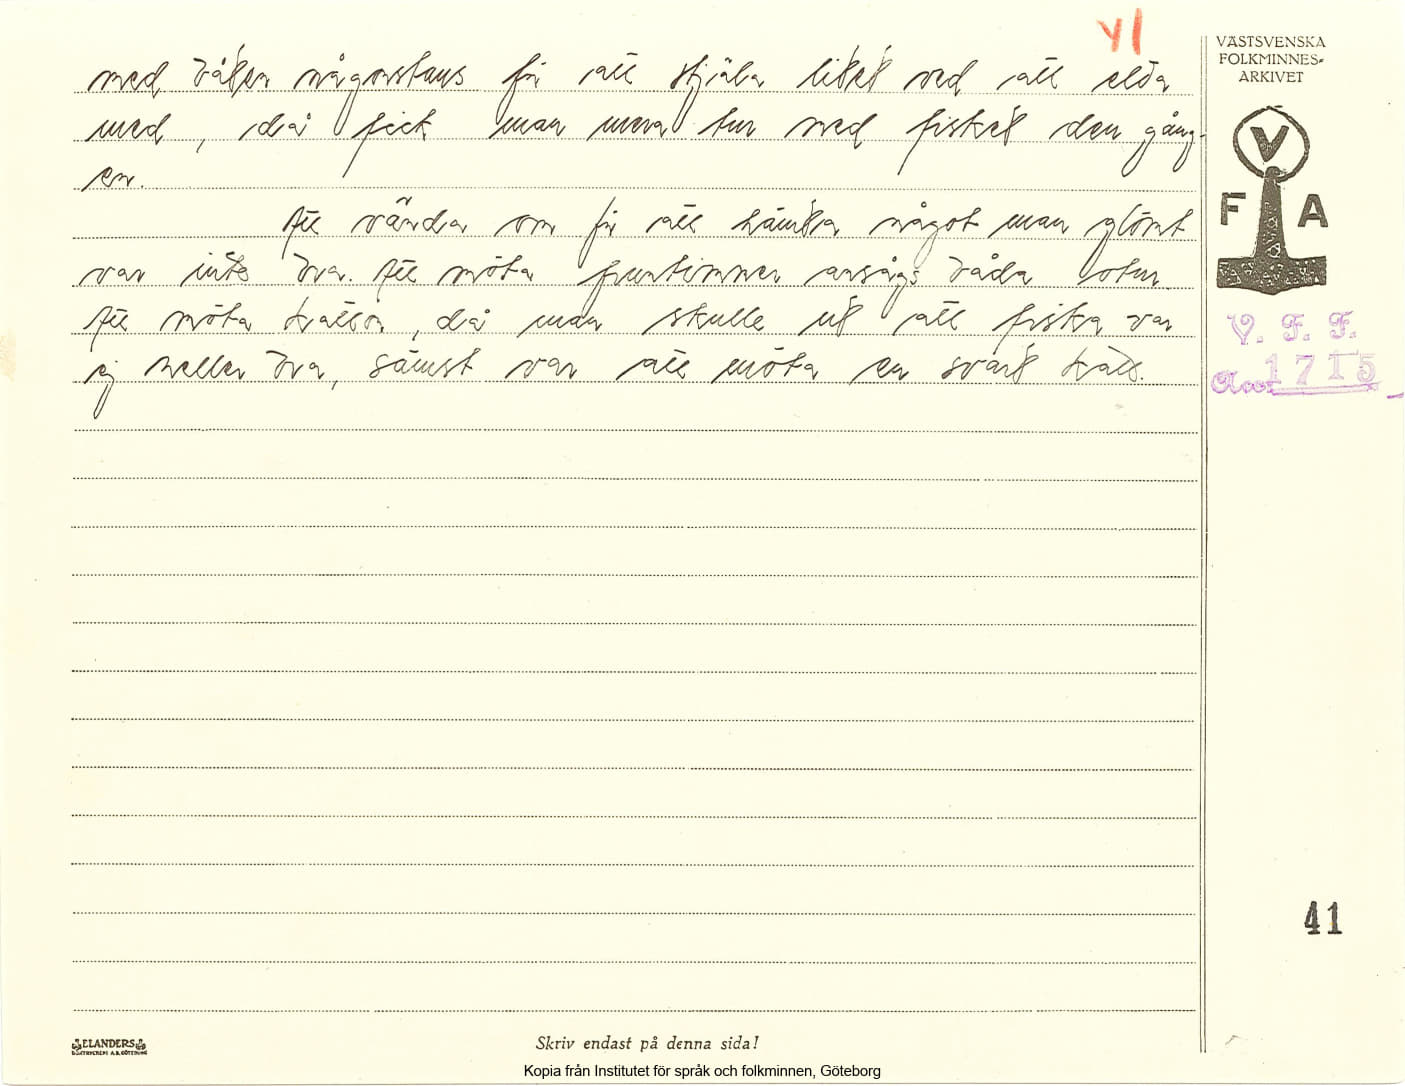 41
VÄSTSVENSKA
FOLKMINNES-
ARKIVET
med båten någonstans för att stjäla litet ved att elda
med, då fick man mera tur med fisket den gång-
en.
Att vända om för att hämta något man glömt
var inte bra. Att möta fruntimmer ansågs båda otur.
Att möta kattor, då man skulle ut att fiska var
ej heller bra, sämst var att möta en svart katt.
V
F A
V. F. F.
Acc. 1715
41
ELANDERS
BOKTRYCKERI A.B. GÖTEBORG
Skriv endast på denna sida!
Kopia från Institutet för språk och folkminnen, Göteborg